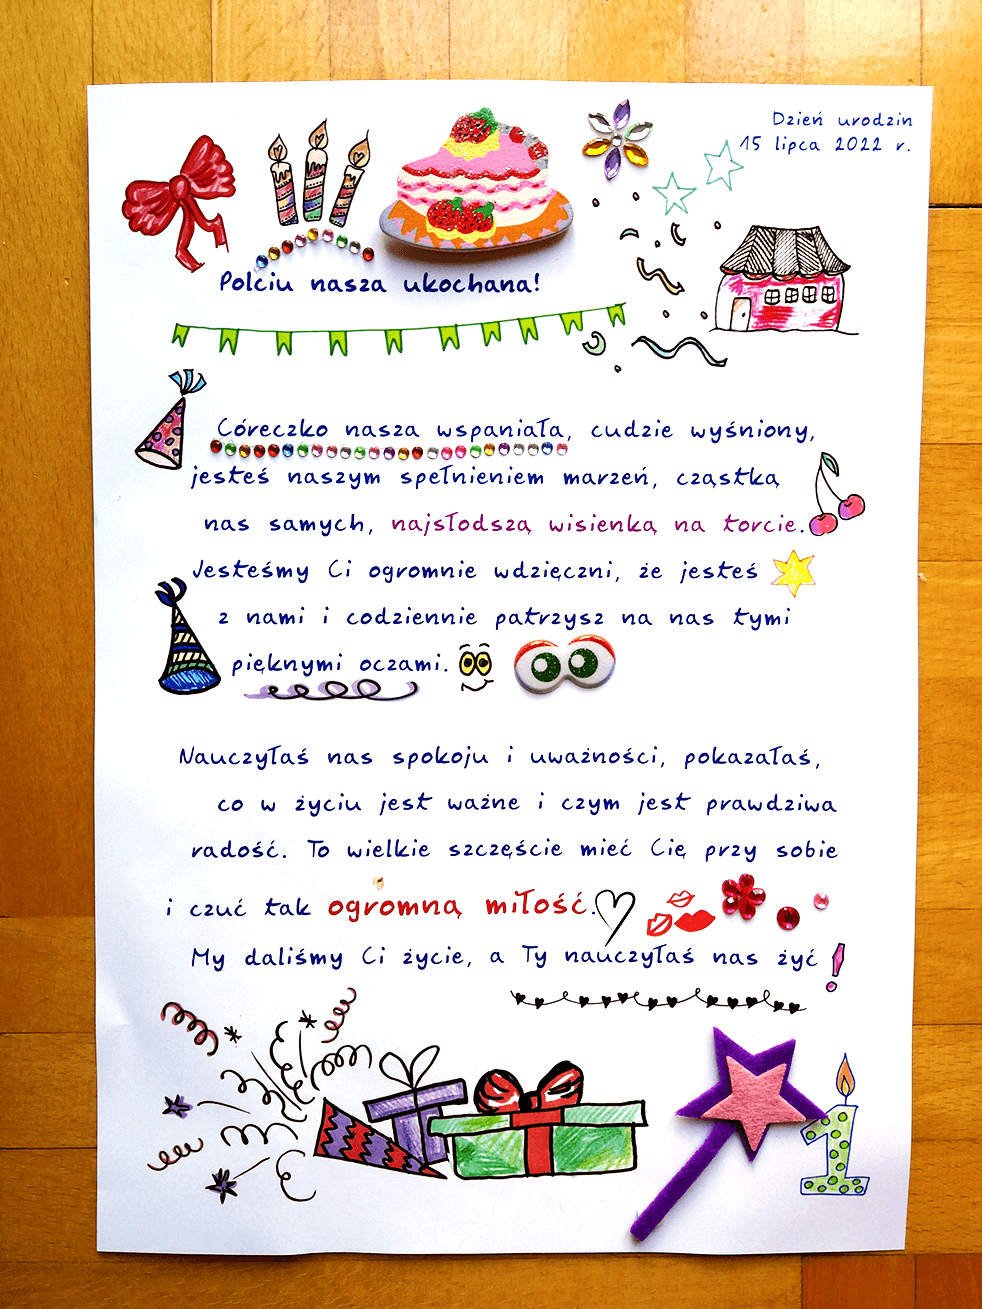 Dzień urodzin
15 lipca 2022 r.
Polciu nasza ukochana!
Córeczko nasza wspaniała, cudzie wyśniony,
jesteś naszym spełnieniem marzeń, cząstką
nas samych, najsłodszą wisienką na torcie.
Jesteśmy Ci ogromnie wdzięczni, że jesteś
z nami i codziennie patrzysz na nas tymi
pięknymi oczami.
Nauczyłaś nas spokoju i uważności, pokazałaś,
co w życiu jest ważne i czym jest prawdziwa
radość. To wielkie szczęście mieć Cię przy sobie
i czuć tak ogromną miłość.
My daliśmy Ci życie, a Ty nauczyłaś nas żyć!
1